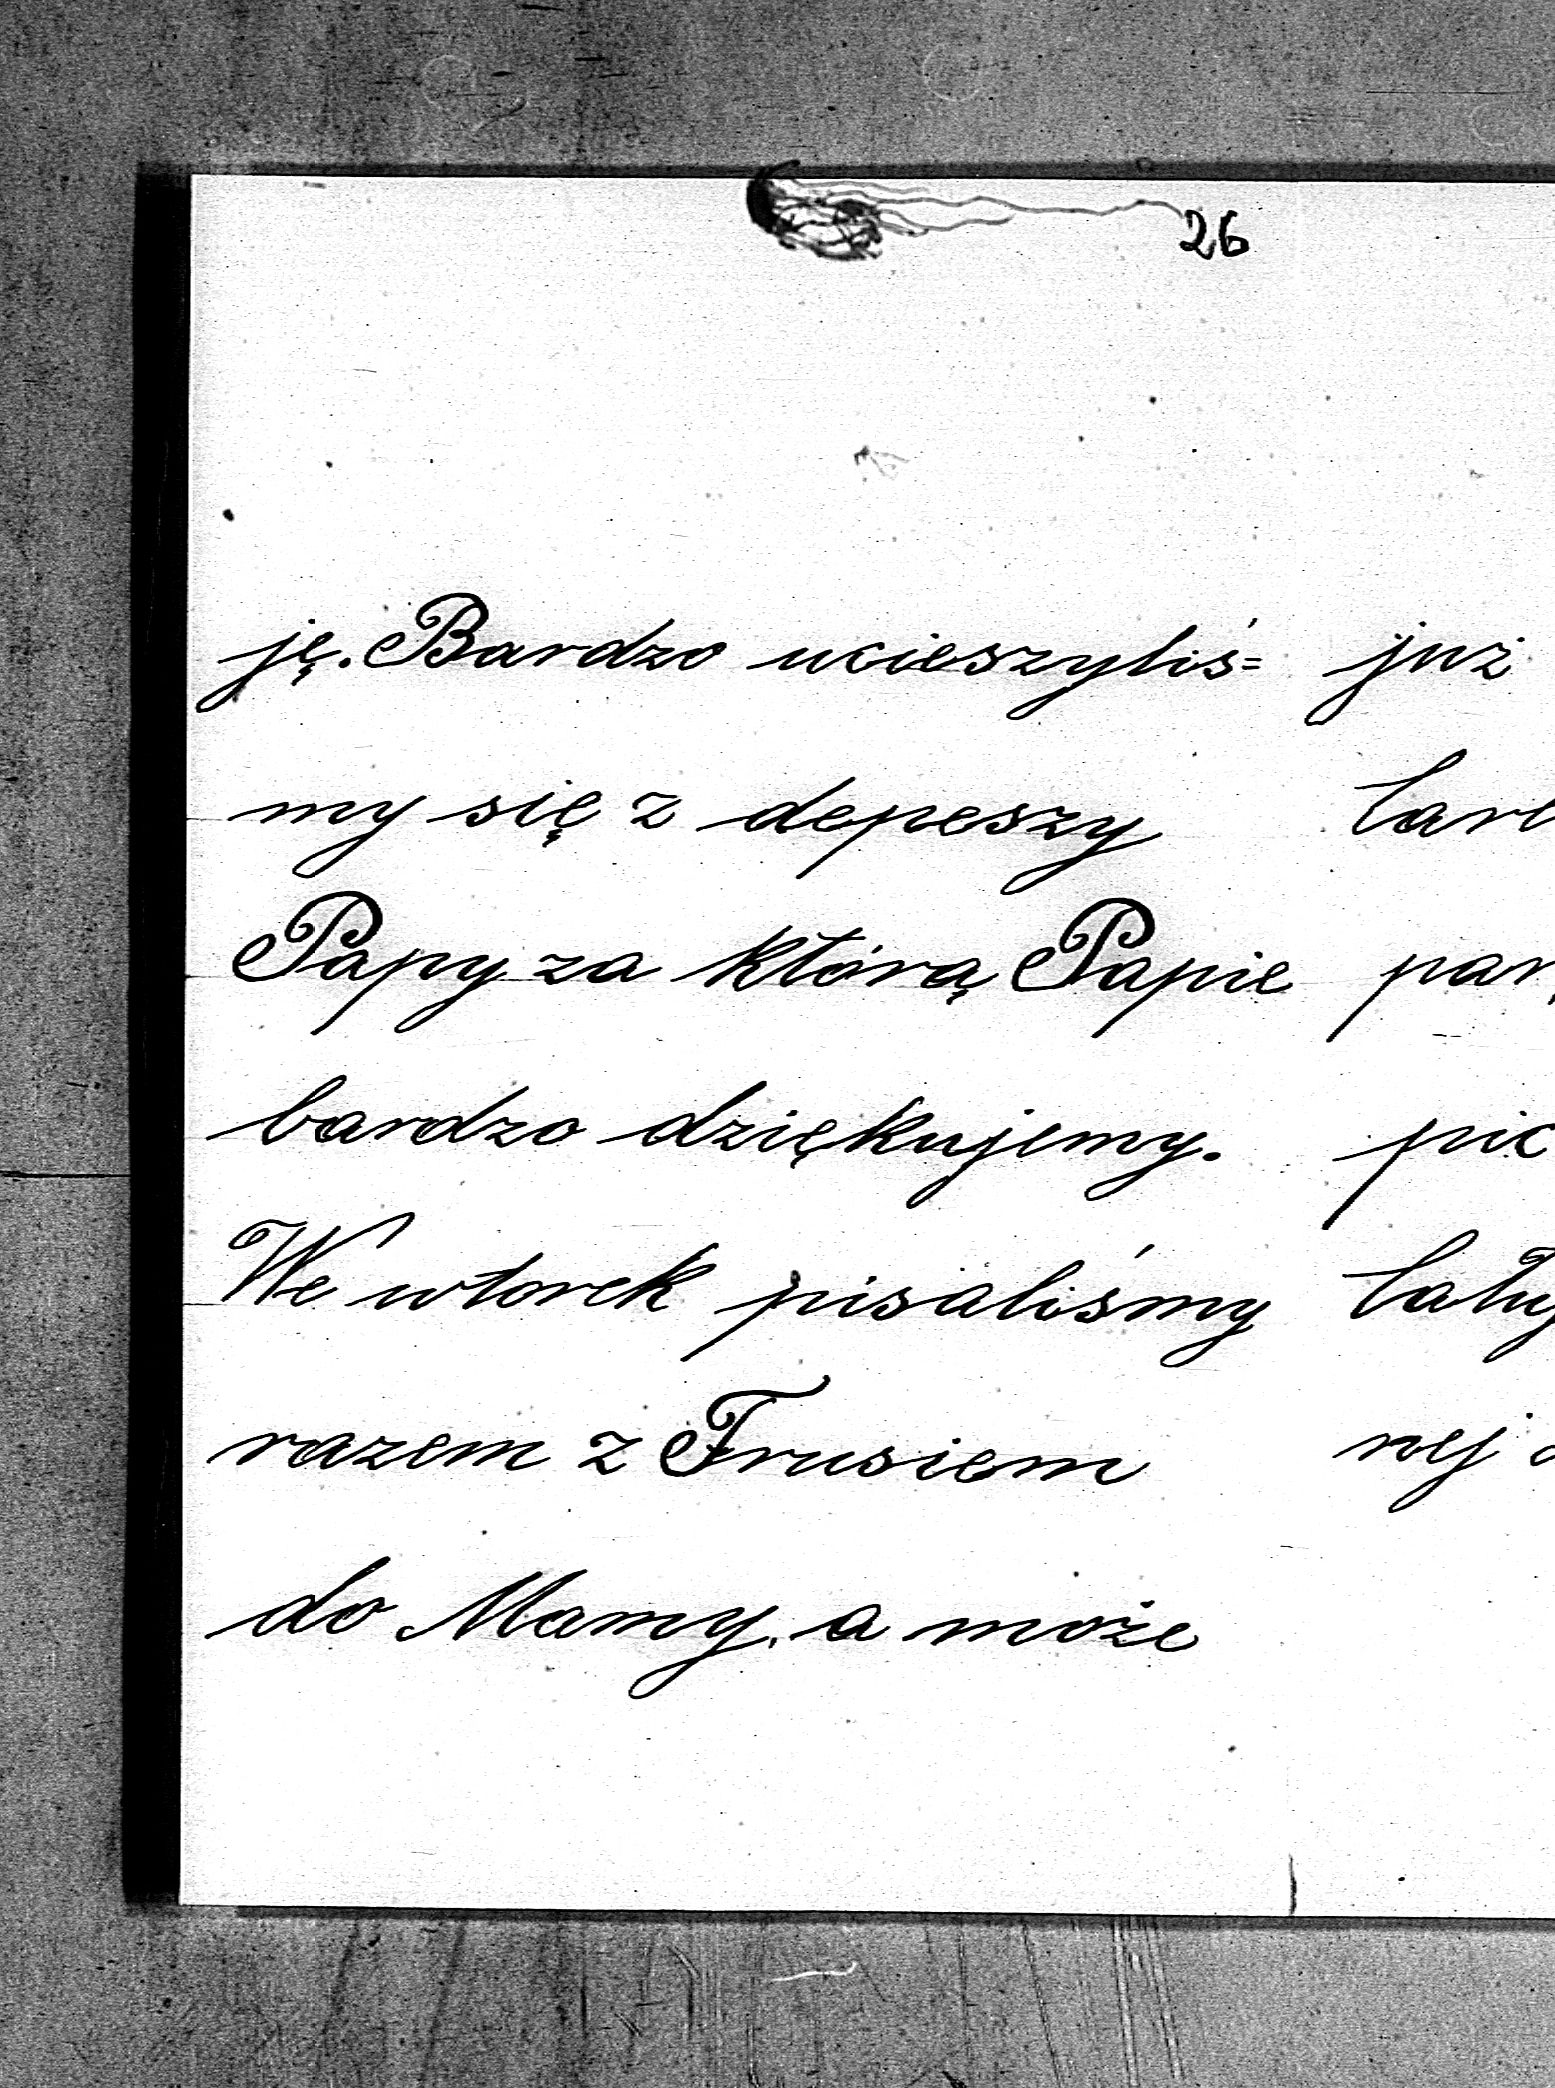 26
ję. Bardzo ucieszyliś=
my się z depeszy
Papy za którą Papie
bardzo dziękujemy.
We wtorek pisaliśmy
razem z Trusiem
do Mamy, a może
już